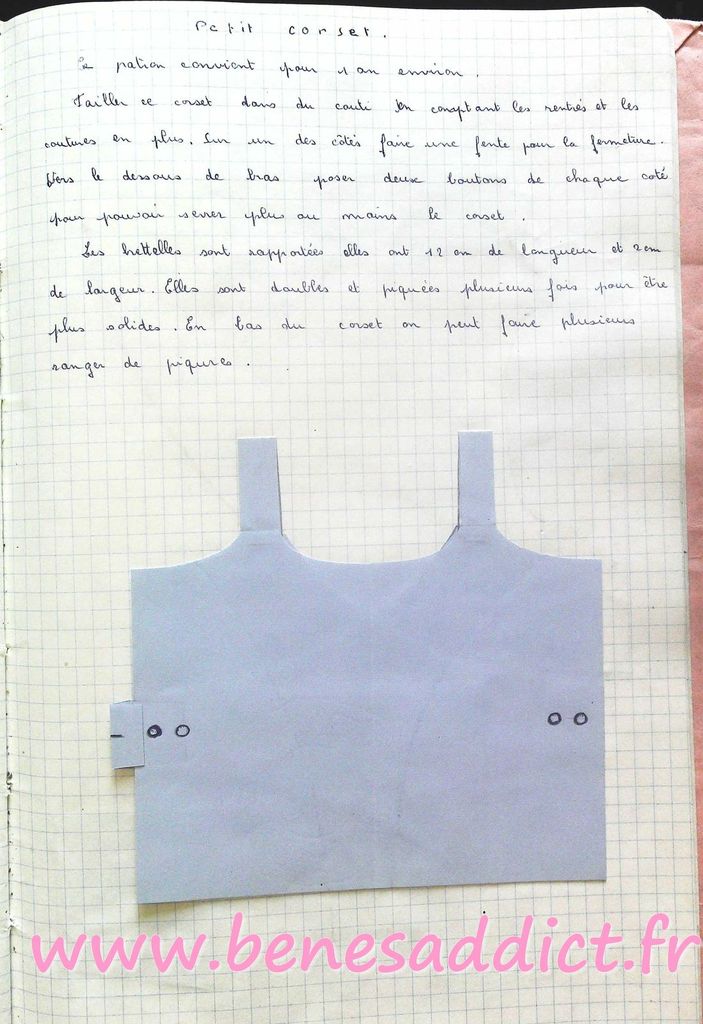 Petit corset.
Le patron convient pour 1 an environ.
Tailler ce corset dans du couti en comptant les rentrés et les
coutures en plus. Sur un des côtés faire une fente pour la fermeture.
Vers le dessous de bras poser deux boutons de chaque coté
pour pouvoir serrer plus ou moins le corset.
Les brettelles sont rapportées elles ont 12 cm de longueur et 2 cm
de largeur. Elles sont doubles et piquées plusieurs fois pour être
plus solides. En bas du corset on peut faire plusieurs
ranger de piqures.
www.benesaddict.fr